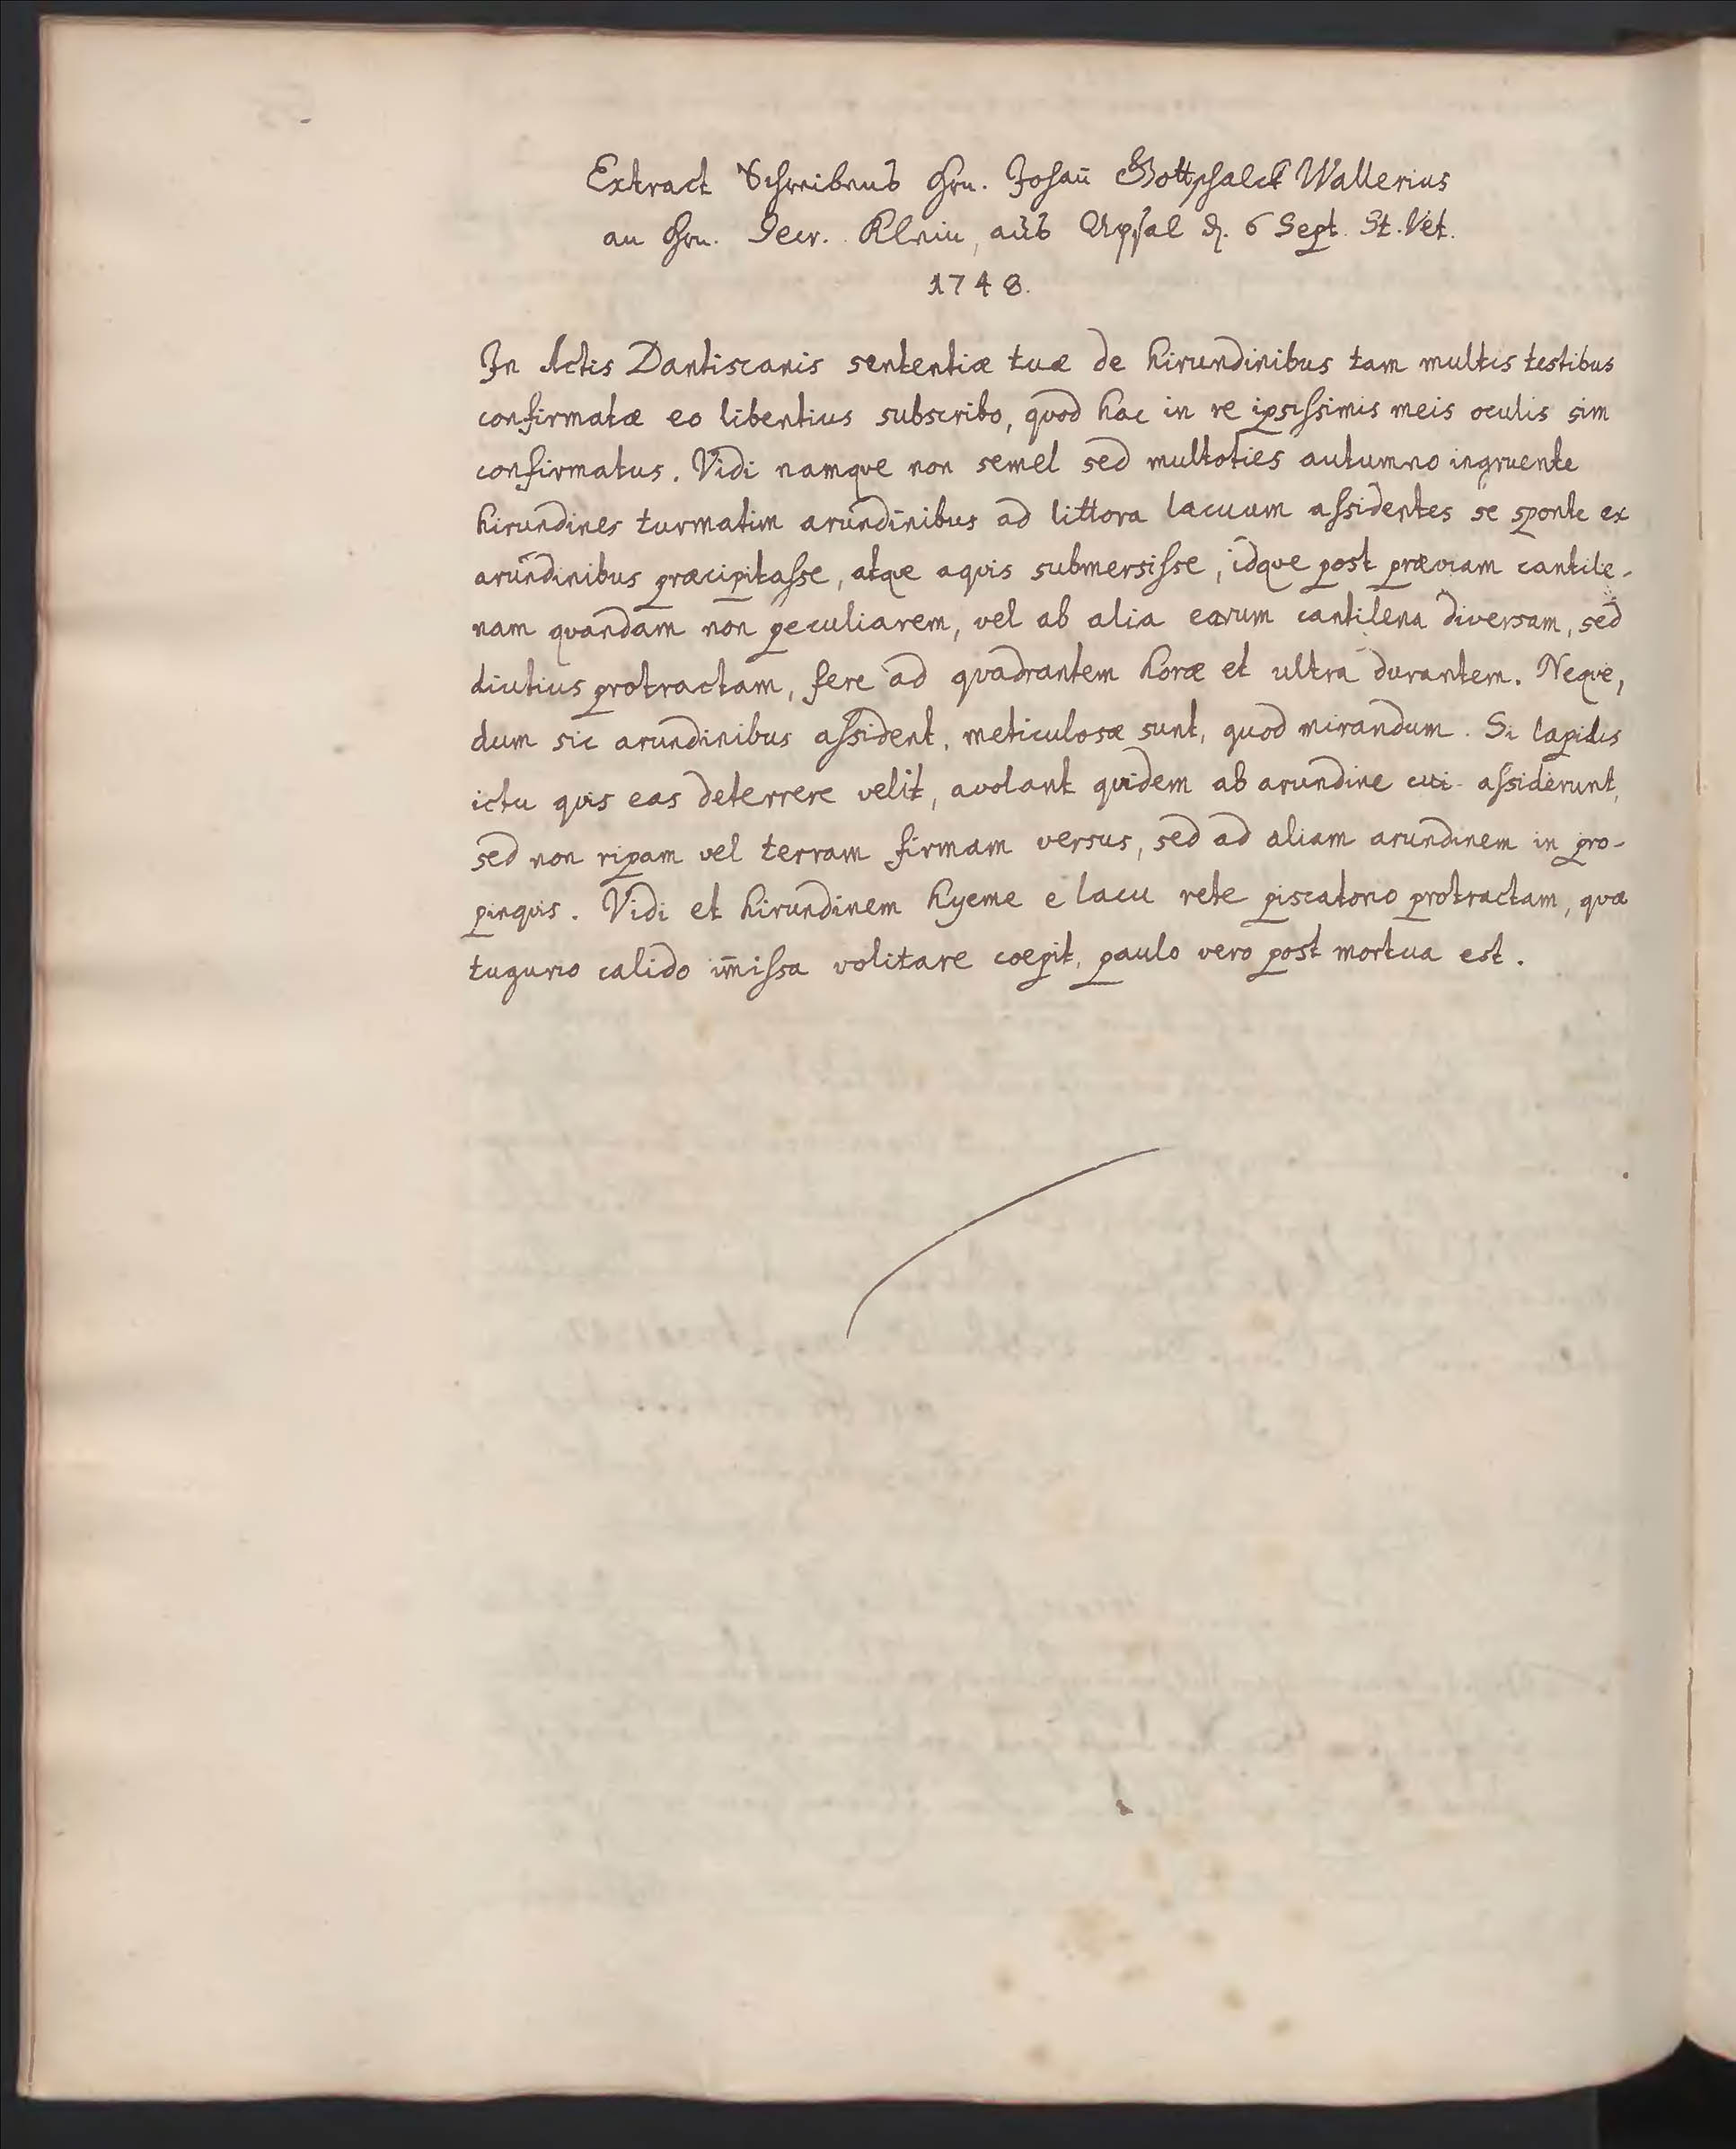 Extract Schreibens Hrn. Johan̅ Gottschalck Wallerius
an Hrn. Secr. Klein, aus Upsal d. 6 Sept. St. Vet.
1748.
In Actis Dantiscanis sententiæ tuæ de hirundinibus tam multis testibus
confirmatæ eo libentius subscribo, quod hac in re ipsissimis meis oculis sim
confirmatus. Vidi namque non semel sed multoties autumno ingruente
hirundines turmatim arundinibus ad littora lacuum assidentes se sponte ex
arundinibus præcipitasse, atque aquis submersisse, idque post præviam cantile-
nam quandam non peculiarem, vel ab alia earum cantilena diversam, sed
diutius protractam, fere ad quadrantem horæ et ultra durantem. Neque,
dum sic arundinibus assident, meticulosæ sunt, quod mirandum. Si lapidis
ictu quis eas deterrere velit, avolant quidem ab arundine cui assiderunt,
sed non ripam vel terram firmam versus, sed ad aliam arundinem in pro-
pinquis. Vidi et hirundinem hyeme e lacu rete piscatorio protractam, quæ
tugurio calido im̅issa volitare coepit, paulo vero post mortua est.